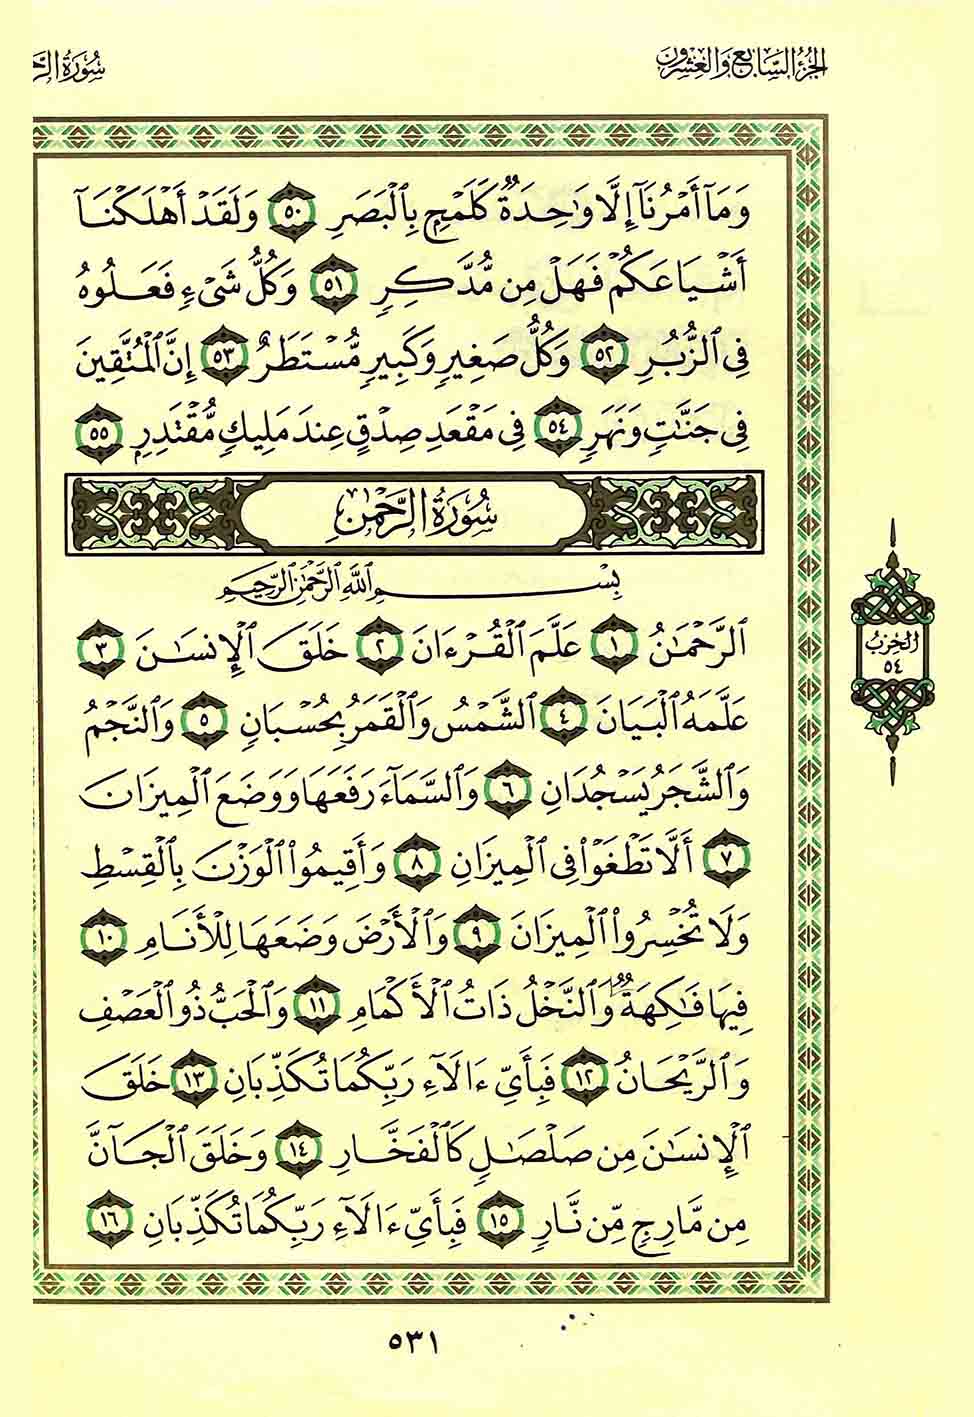 الجزء السابع والعشرون
سورة الرح
وَمَآ أَمْرُنَآ إِلَّا وَٰحِدَةٌ كَلَمْحٍۭ بِٱلْبَصَرِ ٥٠ وَلَقَدْ أَهْلَكْنَآ
أَشْيَاعَكُمْ فَهَلْ مِن مُّدَّكِرٍ ٥١ وَكُلُّ شَىْءٍ فَعَلُوهُ
فِى ٱلزُّبُرِ ٥٢ وَكُلُّ صَغِيرٍ وَكَبِيرٍ مُّسْتَطَرٌ ٥٣ إِنَّ ٱلْمُتَّقِينَ
فِى جَنَّٰتٍ وَنَهَرٍ ٥٤ فِى مَقْعَدِ صِدْقٍ عِندَ مَلِيكٍ مُّقْتَدِرٍۭ ٥٥
سُورَةُ الرَّحْمَٰنِ
بِسْمِ ٱللَّهِ ٱلرَّحْمَٰنِ ٱلرَّحِيمِ
ٱلرَّحْمَٰنُ ١ عَلَّمَ ٱلْقُرْءَانَ ٢ خَلَقَ ٱلْإِنسَٰنَ ٣
عَلَّمَهُ ٱلْبَيَانَ ٤ ٱلشَّمْسُ وَٱلْقَمَرُ بِحُسْبَانٍ ٥ وَٱلنَّجْمُ
وَٱلشَّجَرُ يَسْجُدَانِ ٦ وَٱلسَّمَآءَ رَفَعَهَا وَوَضَعَ ٱلْمِيزَانَ
٧ أَلَّا تَطْغَوْا۟ فِى ٱلْمِيزَانِ ٨ وَأَقِيمُوا۟ ٱلْوَزْنَ بِٱلْقِسْطِ
وَلَا تُخْسِرُوا۟ ٱلْمِيزَانَ ٩ وَٱلْأَرْضَ وَضَعَهَا لِلْأَنَامِ ١٠
فِيهَا فَٰكِهَةٌ وَٱلنَّخْلُ ذَاتُ ٱلْأَكْمَامِ ١١ وَٱلْحَبُّ ذُو ٱلْعَصْفِ
وَٱلرَّيْحَانُ ١٢ فَبِأَىِّ ءَالَآءِ رَبِّكُمَا تُكَذِّبَانِ ١٣ خَلَقَ
ٱلْإِنسَٰنَ مِن صَلْصَٰلٍ كَٱلْفَخَّارِ ١٤ وَخَلَقَ ٱلْجَآنَّ
مِن مَّارِجٍ مِّن نَّارٍ ١٥ فَبِأَىِّ ءَالَآءِ رَبِّكُمَا تُكَذِّبَانِ ١٦
الحزب
٥٤
٥٣١